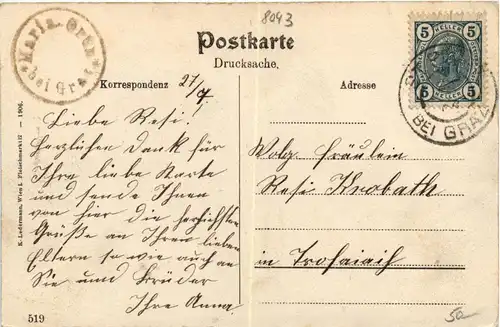 8943
Maria Grün
bei Graz
Postkarte
Drucksache.
Korrespondenz
Adresse
27/7
5 HELLER 5
5 5
BEI GRAZ
Liebe Resi!
Herzlichen Dank für
Ihre liebe Karte
und sende Ihnen
von hier die herzichsten
Grüße an Ihren lieben
Eltern so wie auch an
Sie und Brüder
Ihre Anna.
Wolg. Fräulein
Resi Knobath
in Trofaiach
K. Ledermann, Wien I. Fleischmarkt 12 — 1906.
519
50